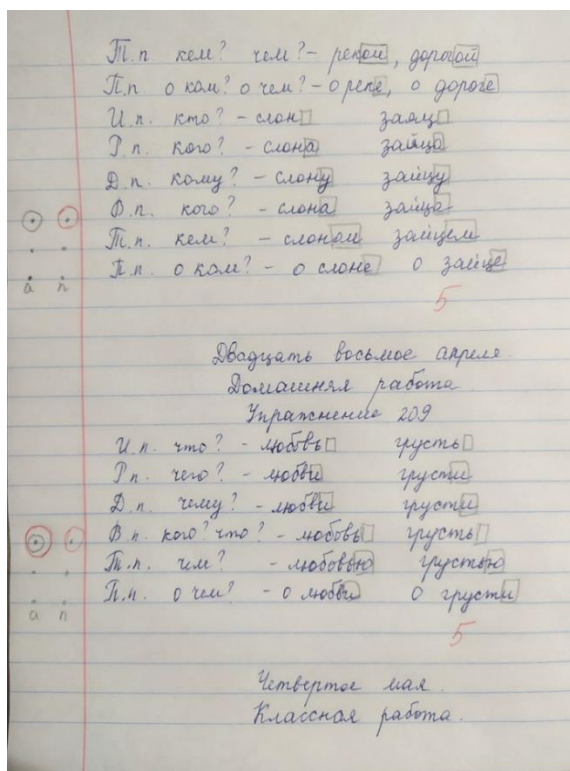 Т.п. кем? чем? - рекой, дорогой
П.п. о ком? о чем? - о реке, о дороге
И.п. кто? - слон заяц
Р.п. кого? - слона зайца
Д.п. кому? - слону зайцу
В.п. кого? - слона зайца
Т.п. кем? - слоном зайцем
П.п. о ком? - о слоне о зайце
а п
5
Двадцать восьмое апреля.
Домашняя работа.
Упражнение 209
И.п. что? - любовь грусть
Р.п. чего? - любви грусти
Д.п. чему? - любви грусти
В.п. кого? что? - любовь грусть
Т.п. чем? - любовью грустью
П.п. о чем? - о любви о грусти
а п
5
Четвертое мая.
Классная работа.